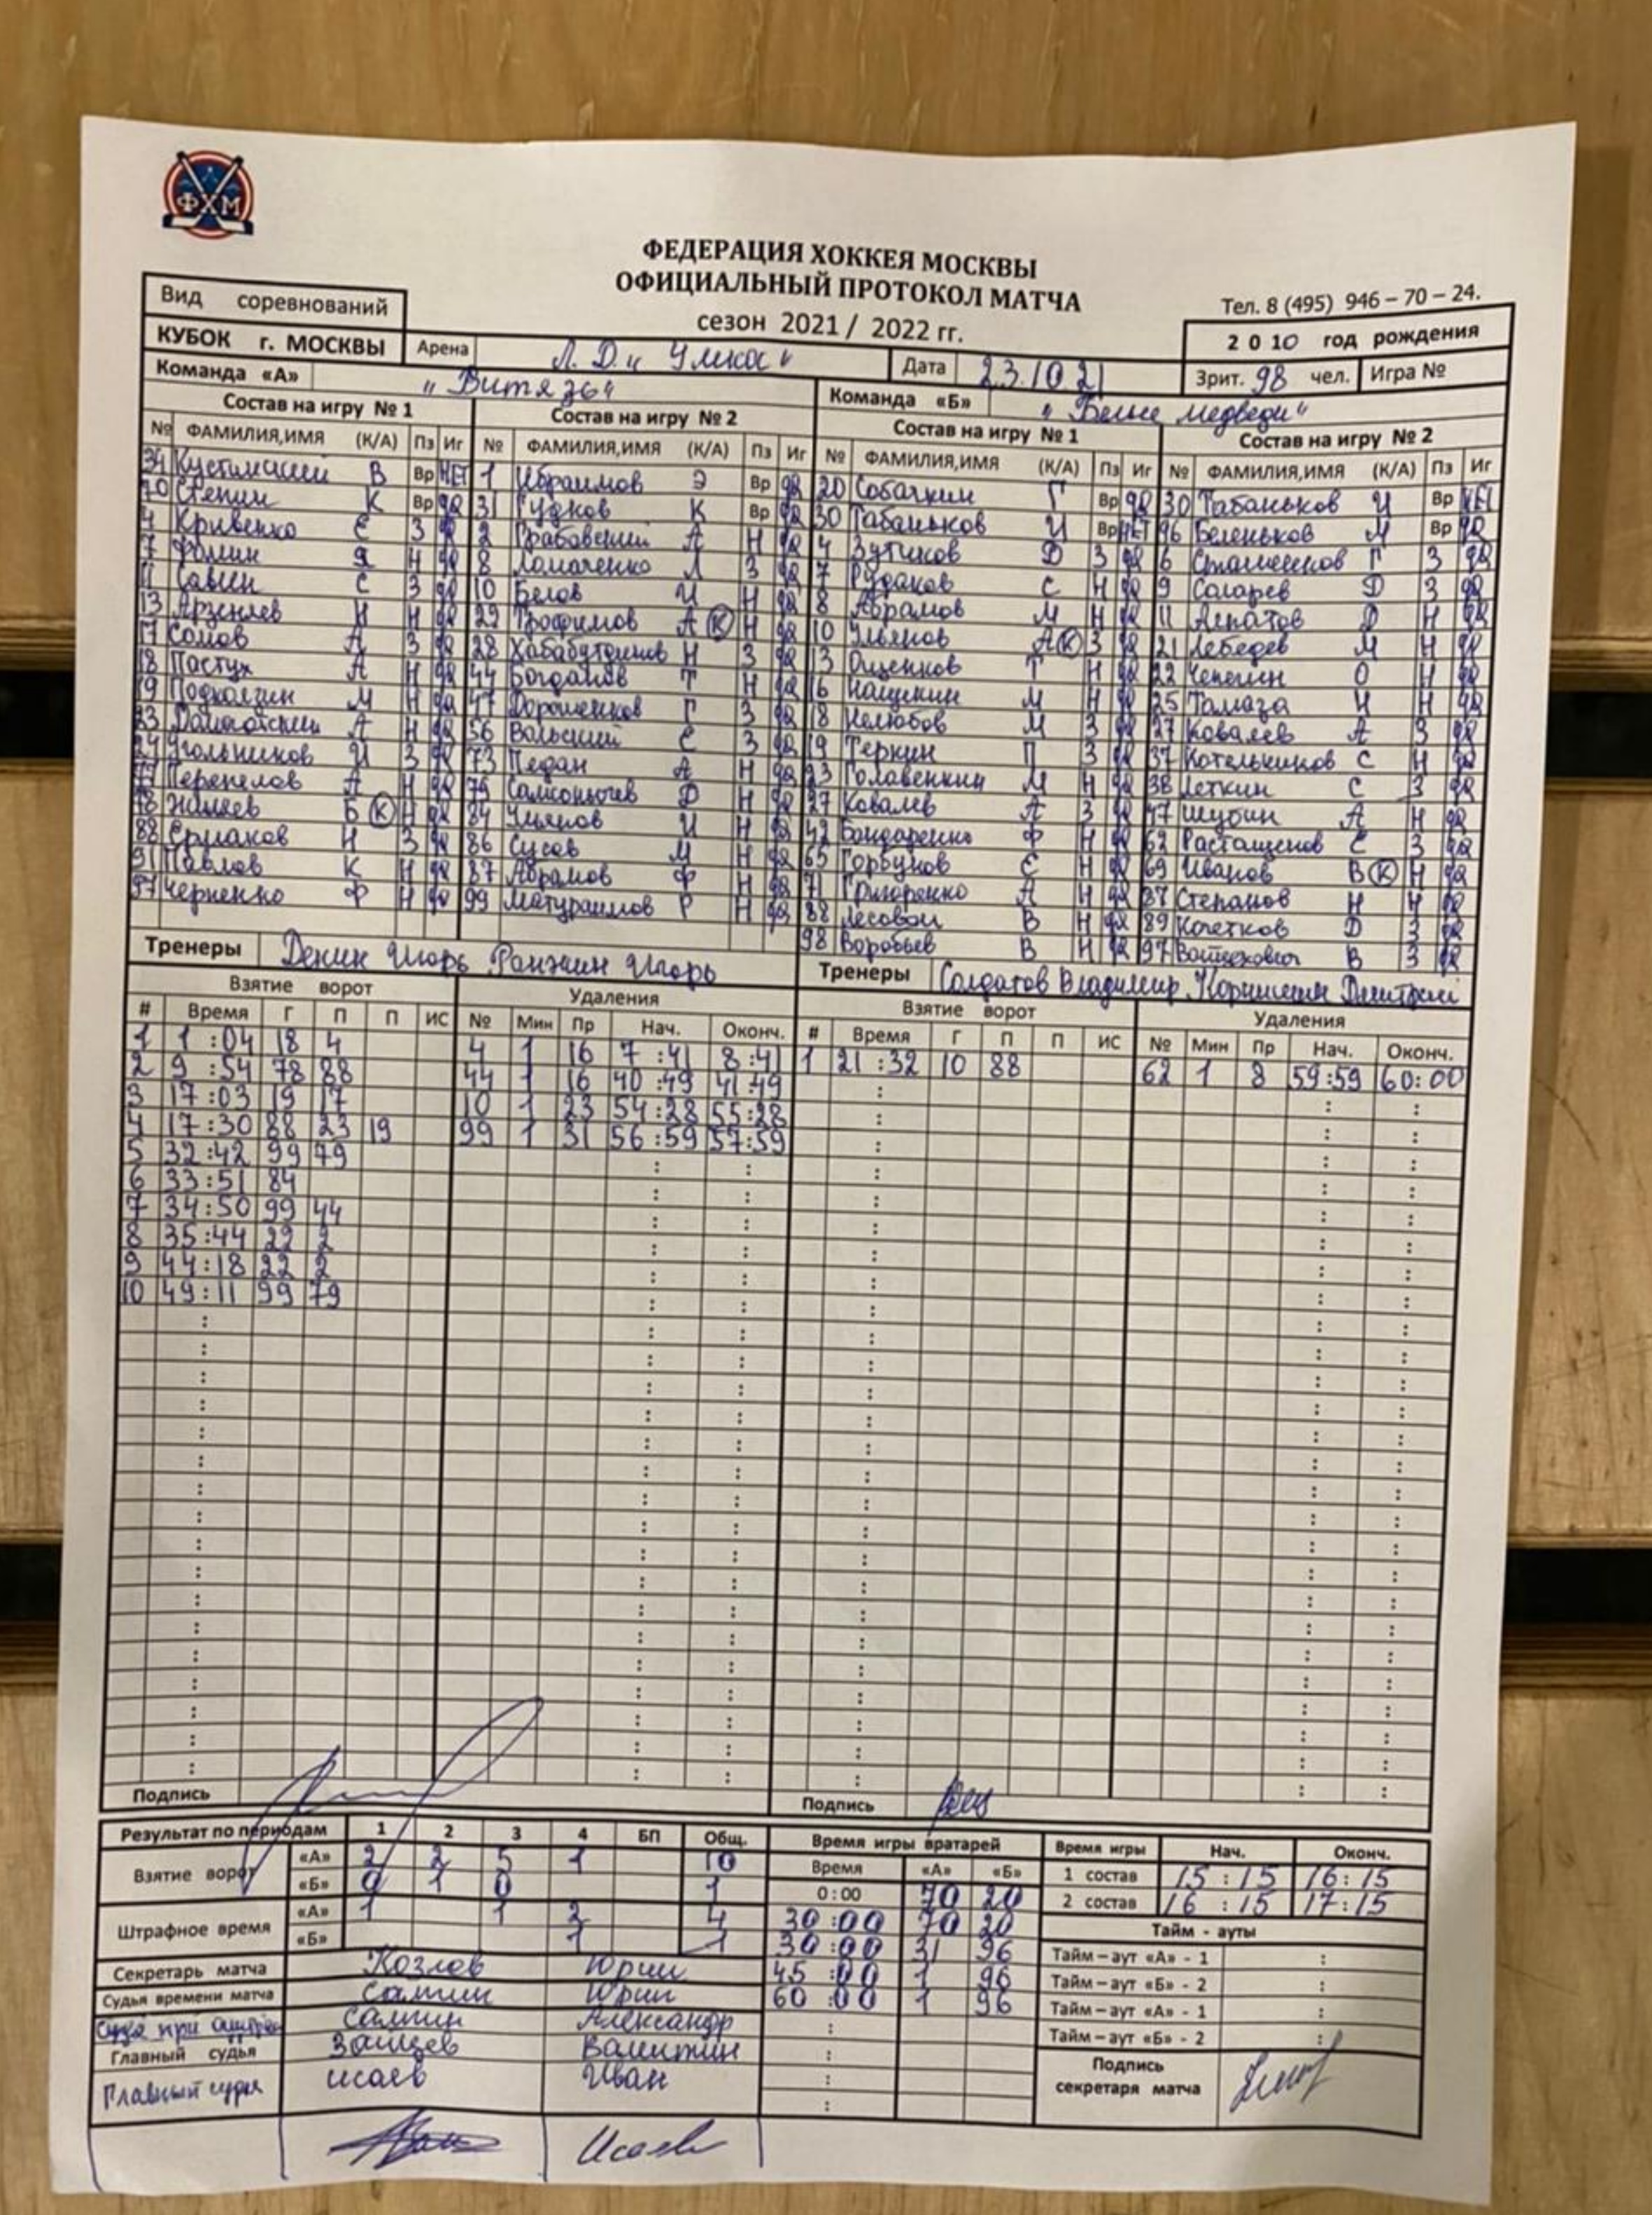 ФХМ
ФЕДЕРАЦИЯ ХОККЕЯ МОСКВЫ
ОФИЦИАЛЬНЫЙ ПРОТОКОЛ МАТЧА
сезон 2021 / 2022 гг.
Тел. 8 (495) 946 – 70 – 24.
Вид соревнований
2 0 10 год рождения
КУБОК г. МОСКВЫ Арена Л. Д. „ Умка " Дата 23.10.21 Зрит. 98 чел. Игра №
Команда «А» „ Витязь" Команда «Б» „ Белые медведи"
Состав на игру № 1 Состав на игру № 2 Состав на игру № 1 Состав на игру № 2
№ ФАМИЛИЯ,ИМЯ (К/А) Пз Иг № ФАМИЛИЯ,ИМЯ (К/А) Пз Иг № ФАМИЛИЯ,ИМЯ (К/А) Пз Иг № ФАМИЛИЯ,ИМЯ (К/А) Пз Иг
34 В Вр НЕТ 1 Ибраимов Э Вр да 20 Собачкин Г Вр да 30 Табаньков И Вр НЕТ
70 Степин К Вр да 31 Гудков К Вр да 30 Табаньков И Вр НЕТ 96 Беленьков М Вр да
4 Кривенко Е З да 2 Грабовский А Н да 4 Зутиков D З да 6 Г З да
7 Фомин Я Н да 8 Ломаченко Л З да 7 Рудаков С Н да 9 Соларев D З да
11 Савин С З да 10 Белов И Н да 8 Абрамов М Н да 11 Алпатов D Н да
13 Арзуняев Н Н да 22 Трофимов А (К) Н да 10 Ульянов А (К) З да 21 Лебедев М Н да
17 Комов А З да 28 Хабабутдинов Н З да 13 Ощепков Т Н да 22 Чепегин О Н да
18 Пастух А Н да 44 Богданов Т Н да 16 Нащекин М Н да 25 Томаза Н Н да
19 Подколзин М Н да 47 Дорошенков Г З да 18 Нелюбов М З да 27 Ковалев А З да
23 А Н да 56 Вольский Е З да 19 Теркин П З да 37 Котельников С Н да
24 Угольников И З да 73 Педан А Н да 23 Голавенкин М Н да 38 Леткин С З да
77 Перепелов А Н да 79 D Н да 27 Ковалев А З да 47 Шубин А Н да
78 Б (К) Н да 84 И Н да 42 Бондаренко Ф Н да 62 Растащенов Е З да
88 Ермаков Н З да 86 Сусов М Н да 65 Горбунов Е Н да 69 Иванов В (К) Н да
91 Павлов К Н да 87 Абрамов Ф Н да 71 Григоренко А Н да 87 Степанов Н Н да
97 Черненко Ф Н да 99 Матураимов Р Н да 88 Лесовой В Н да 89 Кочетков D З да
98 Воробьев В Н да 97 Войцехович В З да
Тренеры Денин Игорь Ранжин Игорь Тренеры Солдатов Владимир Дмитрий
Взятие ворот Удаления Взятие ворот Удаления
# Время Г П П ИС № Мин Пр Нач. Оконч. # Время Г П П ИС № Мин Пр Нач. Оконч.
1 1 :04 18 4 4 1 16 7 :41 8 :41 1 21 :32 10 88 62 1 8 59:59 60:00
2 9 :54 78 88 44 1 16 40 :49 41:49
3 17:03 19 17 10 1 23 54:28 55:28
4 17:30 88 23 19 99 1 31 56:59 57:59
5 32:42 99 79
6 33:51 84
7 34:50 99 44
8 35:44 22 2
9 44:18 22 2
10 49:11 99 79
Подпись Подпись
Результат по периодам 1 2 3 4 БП Общ. Время игры вратарей Время игры Нач. Оконч.
Взятие ворот «А» 2 2 5 1 10 Время «А» «Б» 1 состав 15 : 15 16: 15
«Б» 0 1 0 1 0 : 00 70 20 2 состав 16 : 15 17:15
Штрафное время «А» 1 1 2 4 30 :00 70 20 Тайм - ауты
«Б» 1 1 30 :00 31 96 Тайм – аут «А» - 1 :
Секретарь матча Козлов Юрий 45 :00 1 96 Тайм – аут «Б» - 2 :
Судья времени матча Салтин Юрий 60 :00 1 96 Тайм – аут «А» - 1 :
Судья при Салтин Александр : Тайм – аут «Б» - 2 :
Главный судья Зайцев Валентин : Подпись
Главный судья Исаев Иван : секретаря матча
Исаев